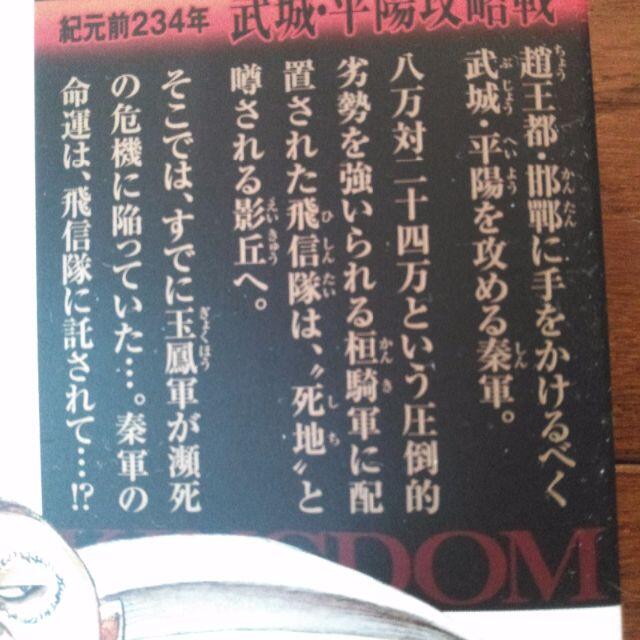 紀元前234年
武城・平陽攻略戦
趙王都・邯鄲に手をかけるべく
武城・平陽を攻める秦軍。
八万対二十四万という圧倒的
劣勢を強いられる桓騎軍に配
置された飛信隊は、〝死地〟と
噂される影丘へ。
そこでは、すでに玉鳳軍が瀕死
の危機に陥っていた…。秦軍の
命運は、飛信隊に託されて…!?